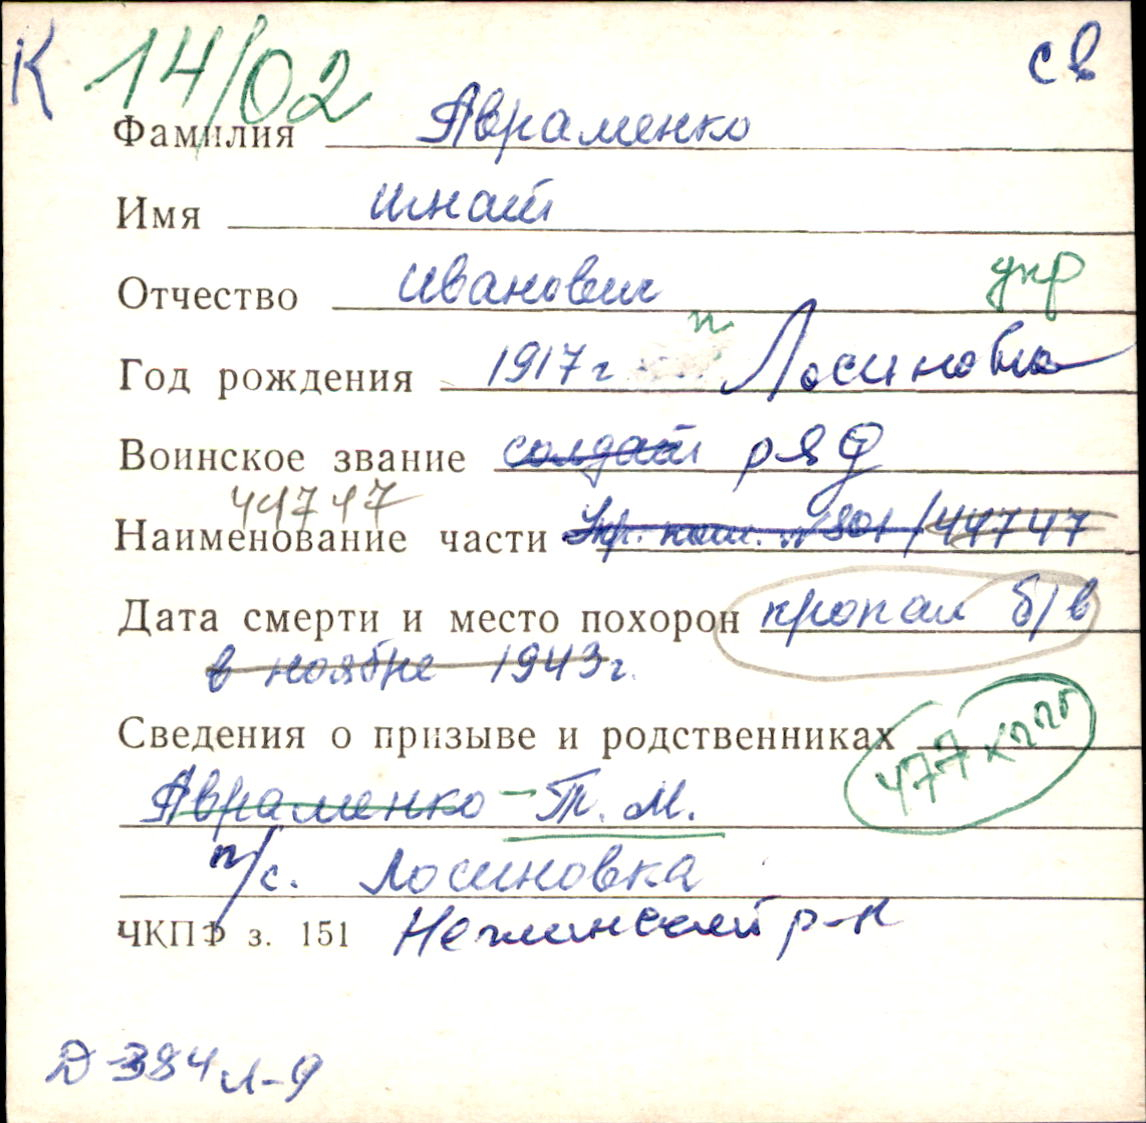 К 14/02 св
Фамилия Авраменко
Имя Игнат
Отчество Иванович укр
п
Год рождения 1917 г Лосиновка
Воинское звание солдат ряд
44747
Наименование части Укр. 44747
Дата смерти и место похорон пропал б/в
в ноябре 1943 г.
Сведения о призыве и родственниках
Авраменко - Т. М.
п/с. Лосиновка
ЧКПФ з. 151 Нежинский р-н
Д 384 л-9